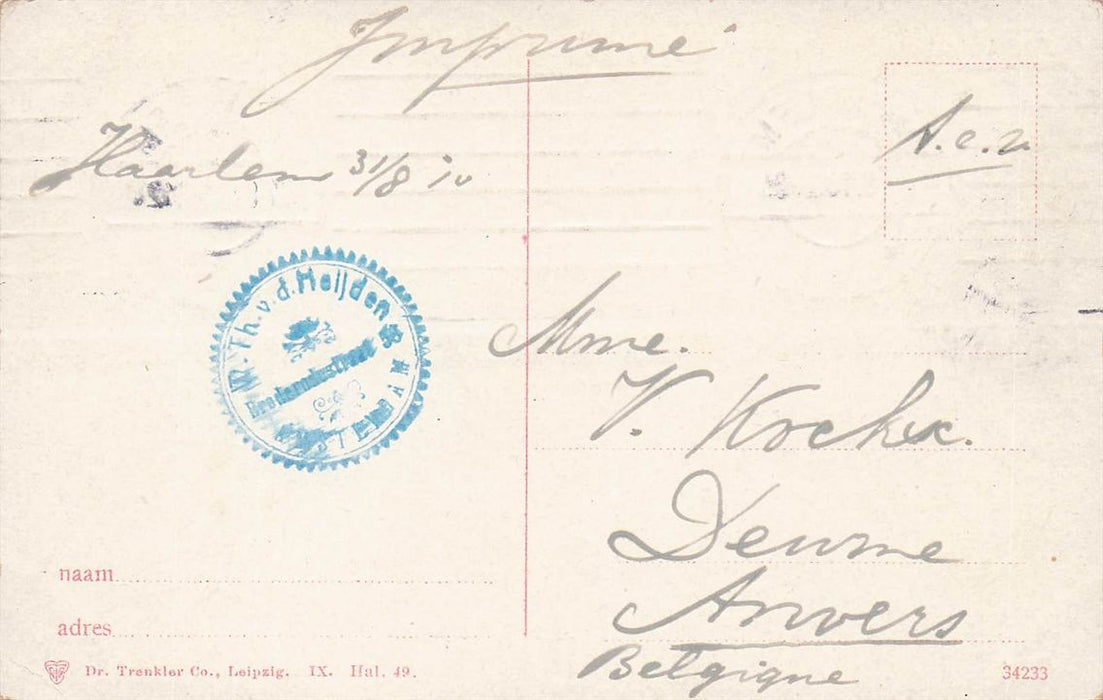 Imprimé
Haarlem 31/8 10
A.c.v.
W. Th. v. d. Heijden
Mme.
V.
Deurne
Anvers
Belgique
naam
adres
Dr. Trenkler Co., Leipzig. IX. Hal. 49.
34233